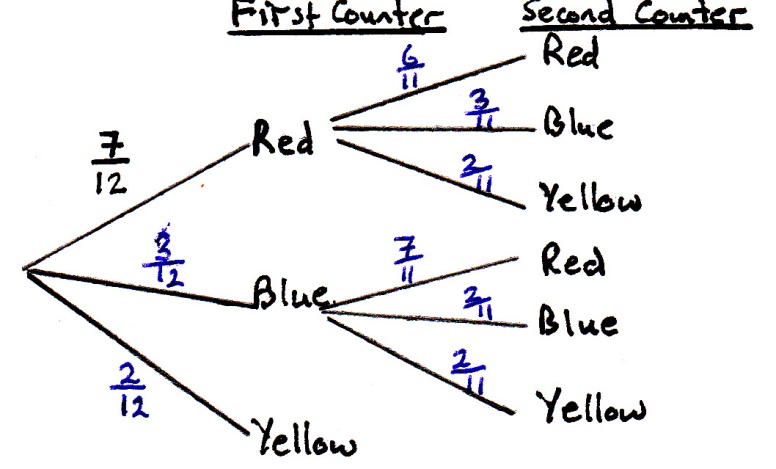 First Counter
Second Counter
7/12
Red
6/11
Red
3/11
Blue
2/11
Yellow
3/12
Blue
7/11
Red
2/11
Blue
2/11
Yellow
2/12
Yellow